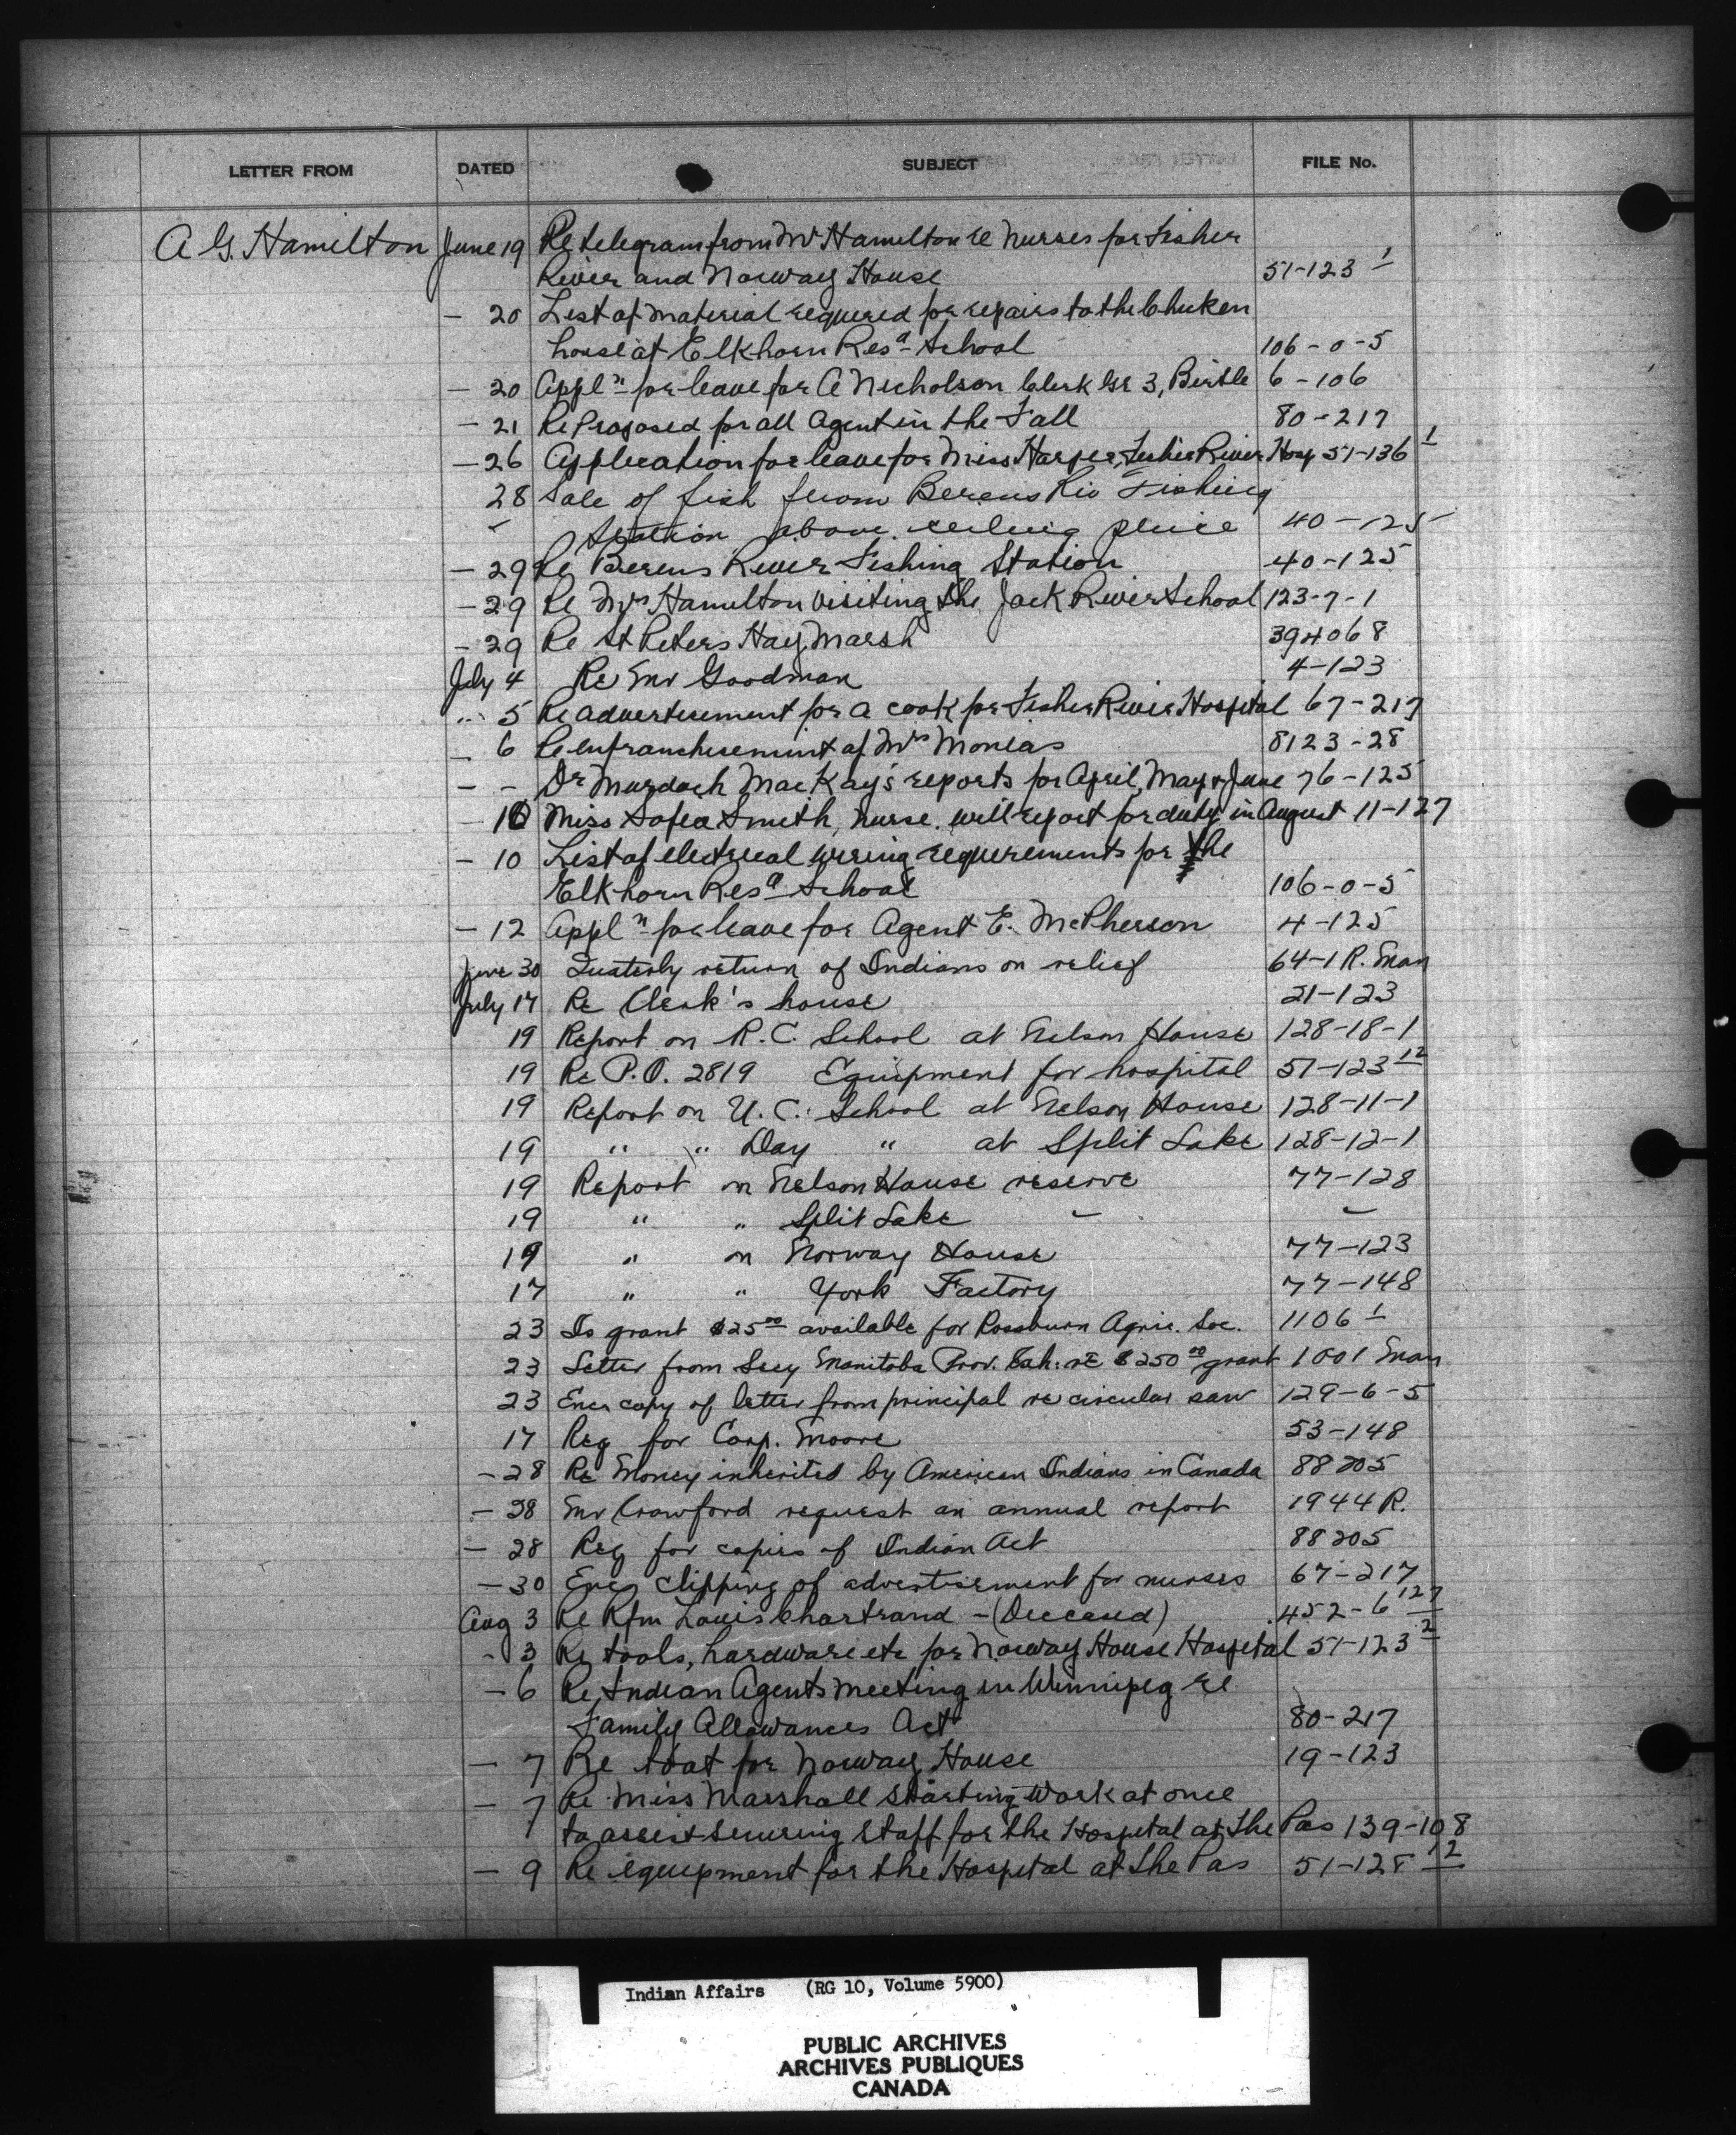 LETTER FROM DATED SUBJECT FILE No.
A G. Hamilton June 19 Re telegram from Mr Hamilton re nurses for Fisher
River and Norway House 51-123 1
- 20 List of material required for repairs to the Chicken
house at Elkhorn Resa School 106-0-5
- 20 Appln for leave for A Nicholson Clerk Gr 3, Birtle 6-106
- 21 Re Proposed for all Agent in the Fall 80-217
- 26 Application for leave for Miss Harper, Fisher River Hosp 51-136 1
28 Sale of fish from Berens Riv Fishing
- Station above ceiling price 40-125
- 29 Re Berens River Fishing Station 40-125
- 29 Re Mrs Hamilton visiting the Jack River School 123-7-1
- 29 Re St Peters Hay Marsh 394068
July 4 Re Mr Goodman 4-123
" 5 Re advertisement for a cook for Fisher River Hospital 67-217
- 6 Re enfranchisement of Mrs Monias 8123-28
- - Dr Murdoch MacKay's reports for April, May & June 76-125
- 10 Miss Sofea Smith, nurse. will report for duty in August 11-127
- 10 List of electrical wiring requirements for the
Elkhorn Resa School 106-0-5
- 12 Appln for leave for Agent E. McPherson 4-125
June 30 Quaterly return of Indians on relief 64-1 R. Man
July 17 Re Clerk's house 21-123
19 Report on R.C. School at Nelson House 128-18-1
19 Re P.O. 2819 Equipment for hospital 51-123 12
19 Report on U.C. School at Nelson House 128-11-1
19 " " Day " at Split Lake 128-12-1
19 Report on Nelson House reserve 77-128
19 " " Split Lake - -
19 " on Norway House 77-123
17 " " York Factory 77-148
23 Is grant $25.00 available for Rossburn Agric. Soc. 1106 1
23 Letter from Secy Manitoba Prov. Exh. re $250.00 grant 1001 Man
23 Enc copy of letter from principal re circular saw 129-6-5
17 Req for Corp. Moore 53-148
- 28 Re Money inherited by American Indians in Canada 88205
- 28 Mr Crawford request an annual report 1944 R.
- 28 Req for copies of Indian Act 88205
- 30 Enc clipping of advertisement for nurses 67-217
Aug 3 Re Rfm Louis Chartrand - (Deceased) 452-6 127
- 3 Re tools, hardware etc for Norway House Hospital 51-123 2
- 6 Re Indian Agents meeting in Winnipeg re
Family Allowances Act 80-217
- 7 Re boat for Norway House 19-123
- 7 Re Miss Marshall starting work at once
to assist securing staff for the Hospital at The Pas 139-108
- 9 Re equipment for the Hospital at The Pas 51-128 12
Indian Affairs (RG 10, Volume 5900)
PUBLIC ARCHIVES
ARCHIVES PUBLIQUES
CANADA